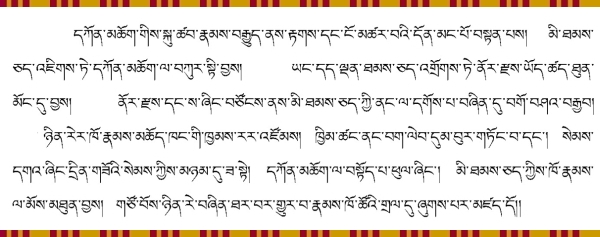 དཀོན་མཆོག་གིས་སྐུ་ཚབ་རྣམས་བརྒྱུད་ནས་རྟགས་དང་ངོ་མཚར་བའི་དོན་མང་པོ་བསྟན་པས། མི་ཐམས་
ཅད་འཇིགས་ཏེ་དཀོན་མཆོག་ལ་བཀུར་སྟི་བྱས། ཡང་དད་ལྡན་ཐམས་ཅད་འགྲོགས་ཏེ་ནོར་རྫས་ཡོད་ཚད་ཐུན་
མོང་དུ་བྱས། ནོར་རྫས་དང་ས་ཞིང་བཙོངས་ནས་མི་ཐམས་ཅད་ཀྱི་ནང་ལ་དགོས་པ་བཞིན་དུ་བགོ་བཤའ་བརྒྱབ།
ཉིན་རེར་ཁོ་རྣམས་མཆོད་ཁང་གི་ཁྱམས་རར་འཛོམས། ཁྱིམ་ཚང་ནང་བག་ལེབ་དུམ་བུར་གཏོང་བ་དང་། སེམས་
དགའ་ཞིང་དྲིན་གཟོའི་སེམས་ཀྱིས་མཉམ་དུ་ཟ་སྟེ། དཀོན་མཆོག་ལ་བསྟོད་པ་ཕུལ་ཞིང་། མི་ཐམས་ཅད་ཀྱིས་ཁོ་རྣམས་
ལ་མོས་མཐུན་བྱས། གཙོ་བོས་ཉིན་རེ་བཞིན་ཐར་བར་གྱུར་བ་རྣམས་ཁོ་ཚོའི་གྲལ་དུ་ཞུགས་པར་མཛད་དོ།།